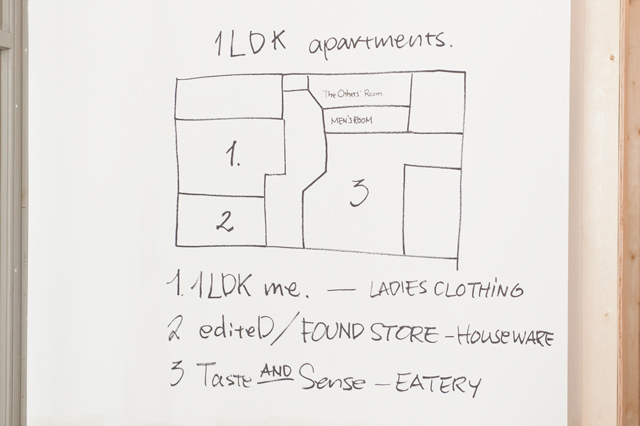 1LDK apartments.
The Others' Room
MEN'S ROOM
1.
3
2
1. 1LDK me. — LADIES CLOTHING
2 editeD/FOUND STORE - HOUSEWARE
3 Taste AND Sense - EATERY